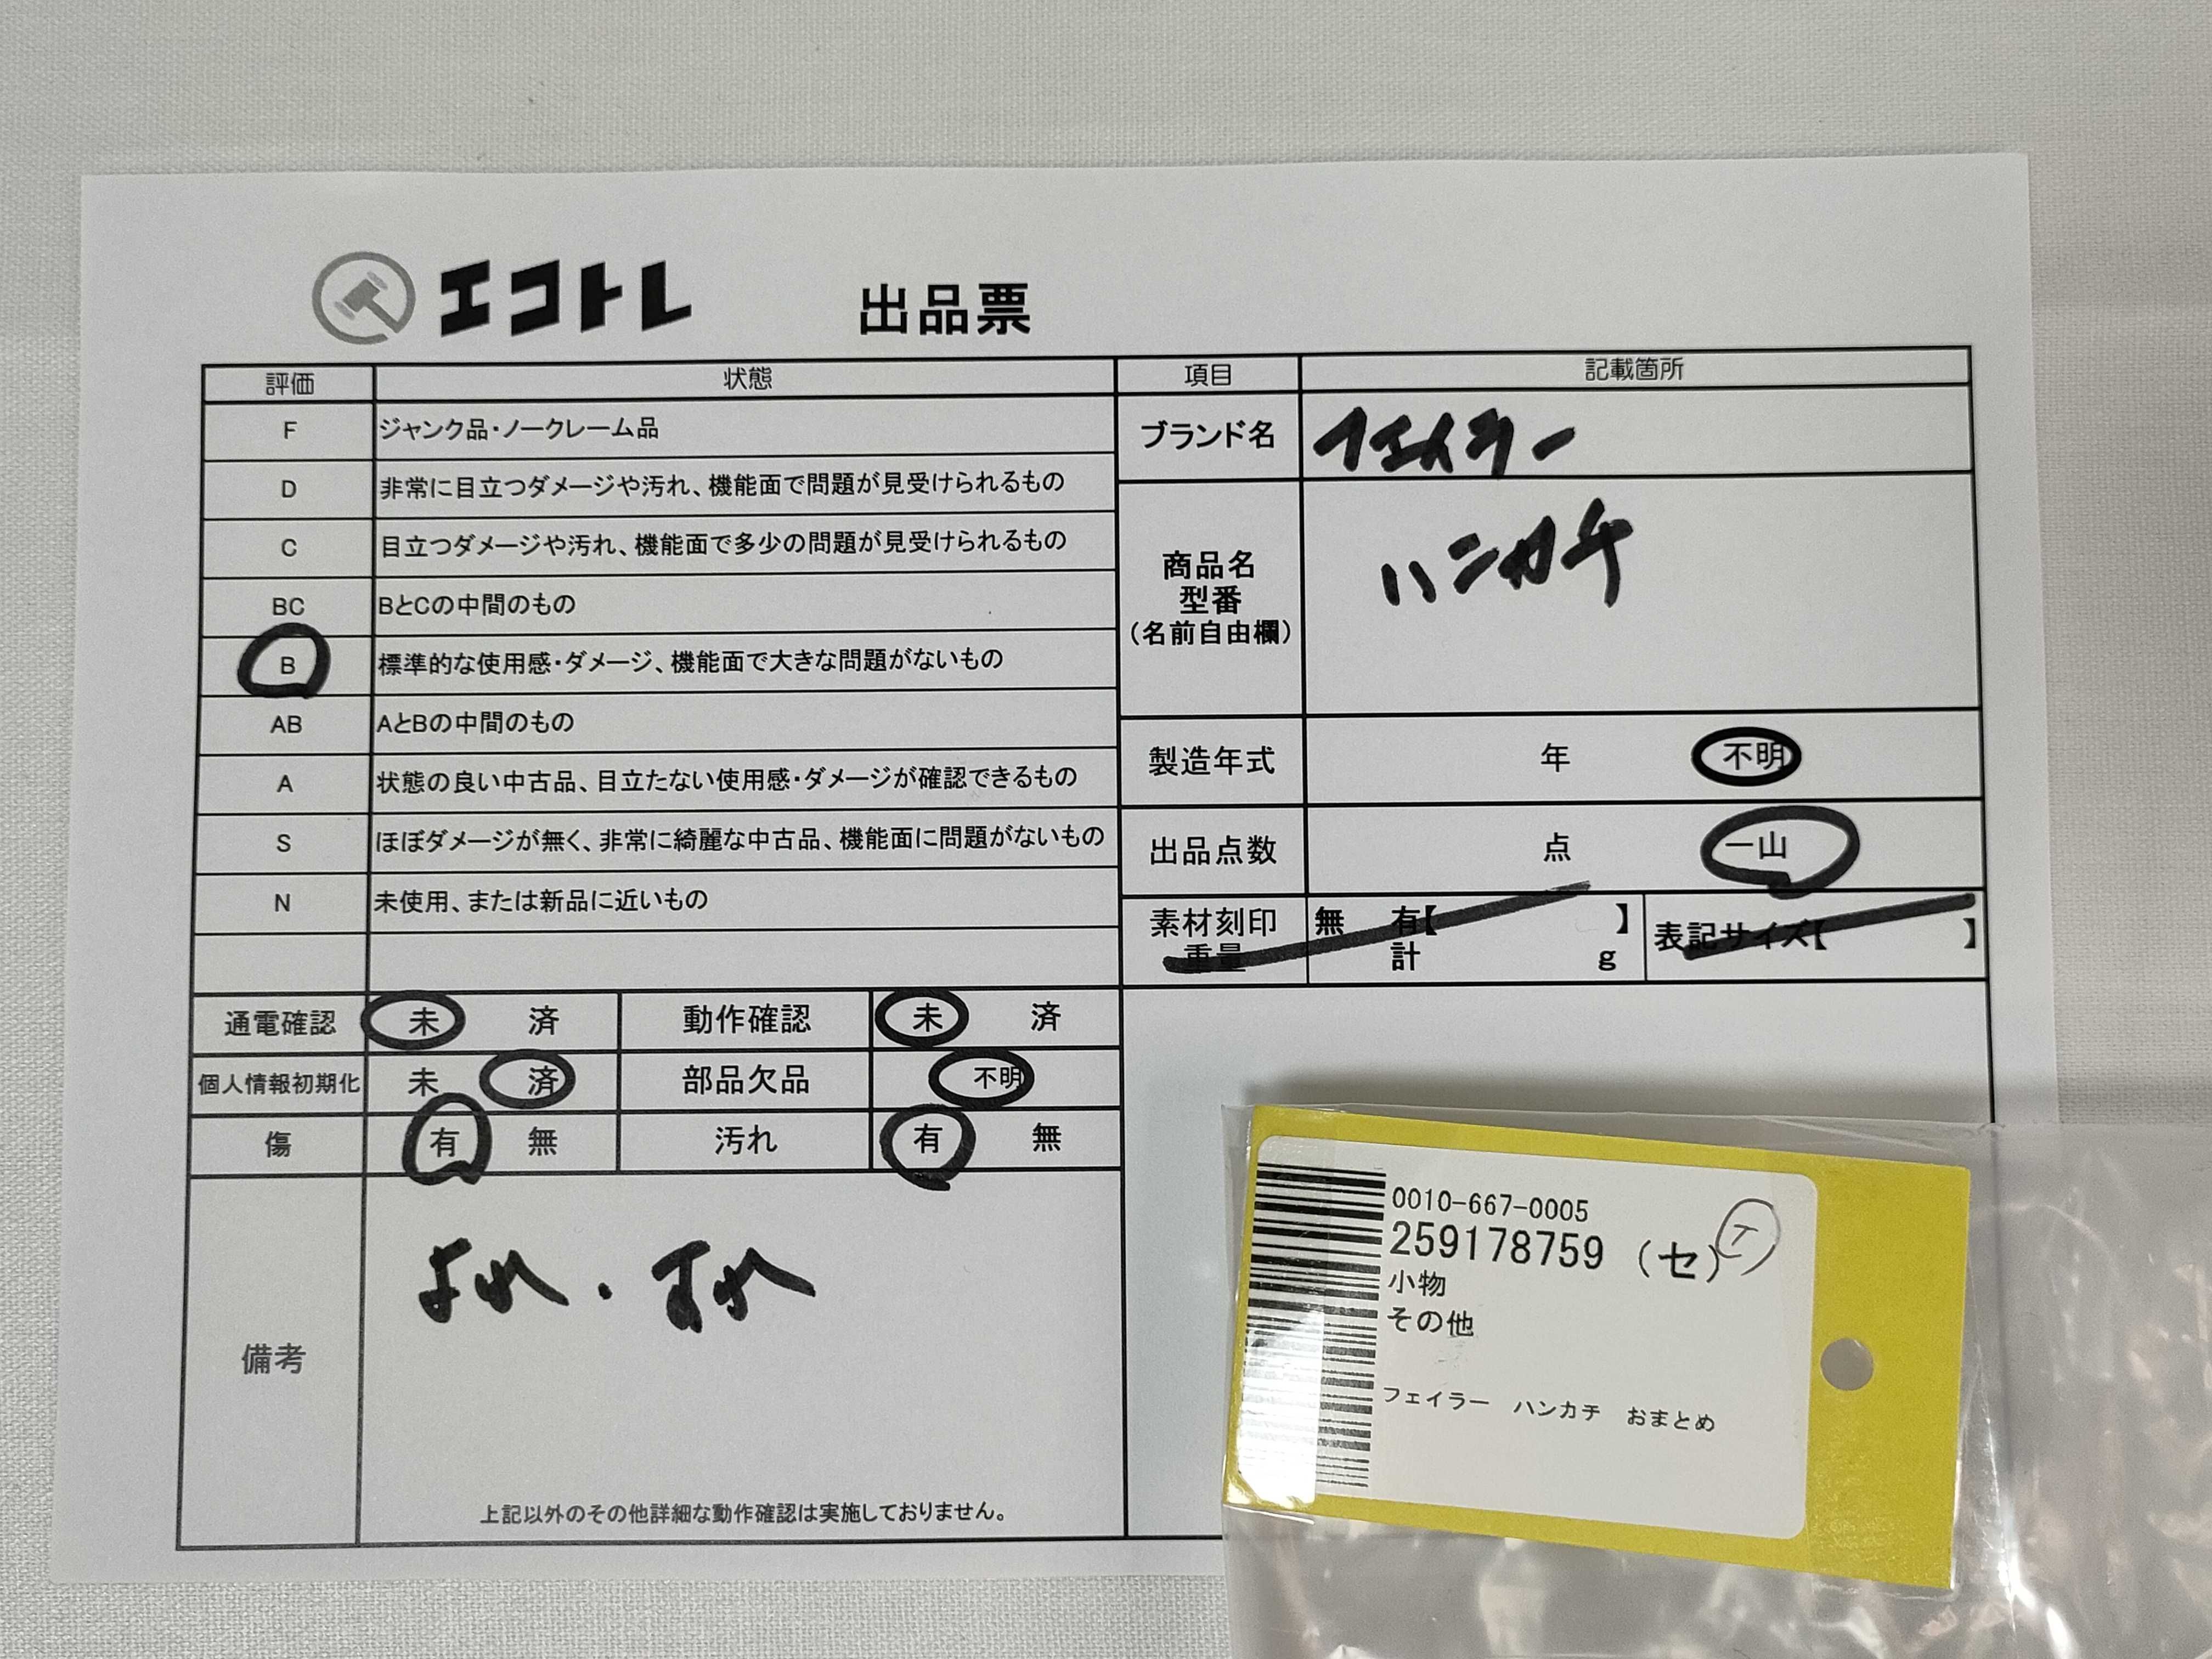 エコトレ 出品票
評価 状態
F ジャンク品・ノークレーム品
D 非常に目立つダメージや汚れ、機能面で問題が見受けられるもの
C 目立つダメージや汚れ、機能面で多少の問題が見受けられるもの
BC BとCの中間のもの
B 標準的な使用感・ダメージ、機能面で大きな問題がないもの
AB AとBの中間のもの
A 状態の良い中古品、目立たない使用感・ダメージが確認できるもの
S ほぼダメージが無く、非常に綺麗な中古品、機能面に問題がないもの
N 未使用、または新品に近いもの
項目 記載箇所
ブランド名 フェイラー
商品名
型番
（名前自由欄）
ハンカチ
製造年式 年 不明
出品点数 点 一山
素材刻印 無 有【 】 表記サイズ【 】
重量 計 g
通電確認 未 済 動作確認 未 済
個人情報初期化 未 済 部品欠品 不明
傷 有 無 汚れ 有 無
備考
よれ・すれ
上記以外のその他詳細な動作確認は実施しておりません。
0010-667-0005
259178759 (セ)
小物
その他
フェイラー ハンカチ おまとめ